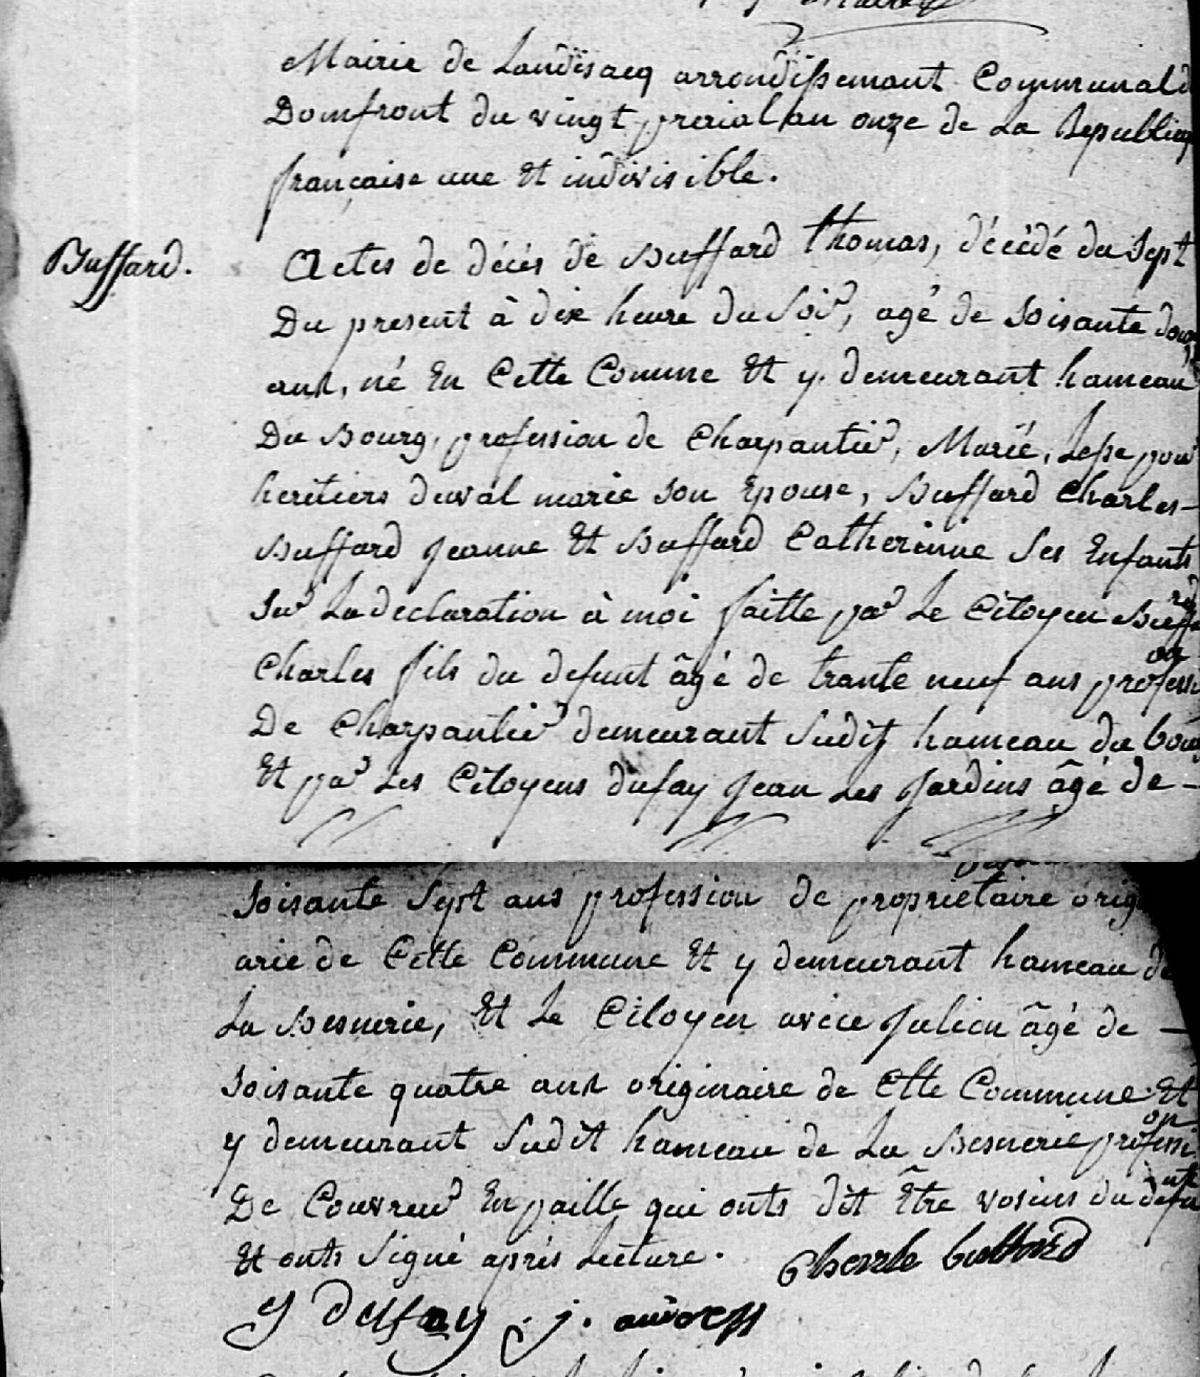 Mairie de Landisacq arrondissemant Communal d
Domfront du vingt prerial an onze de la Republiq
française une Et indivisible.
Buffard.
Actes de décés de Buffard thomas, décédé du Sept
Du present à dix heure du Soir, agé de soisante douz
ans, né En Cette Comune Et y demeurant hameau
Du Bourg, profession de Charpantier, Marié, Lesse pour
heritiers duval marie son Epouse, Buffard Charles -
Buffard Jeanne Et Buffard Catherinne Ses Enfants
Sur La declaration à moi faitte par Le Citoyen Buffard
Charles fils du defunt âgé de trante neuf ans profession
De Charpantier demeurant Sudit hameau du bourg
Et par Les Citoyens dufay Jean Les Jardins âgé de -
Soisante Sept ans profession de propriétaire orig
arie de Cette Commune Et y demeurant hameau de
La Besnerie, Et Le Citoyen avice Julien âgé de -
Soisante quatre ans originaire de Cette Commune Et
y demeurant Sudit hameau de La Besnerie profession
De Couvreur En paille qui onts dit Être vosins du defunt
Et onts Signé aprés Lecture. Cherrle buffard
J Dufay J.